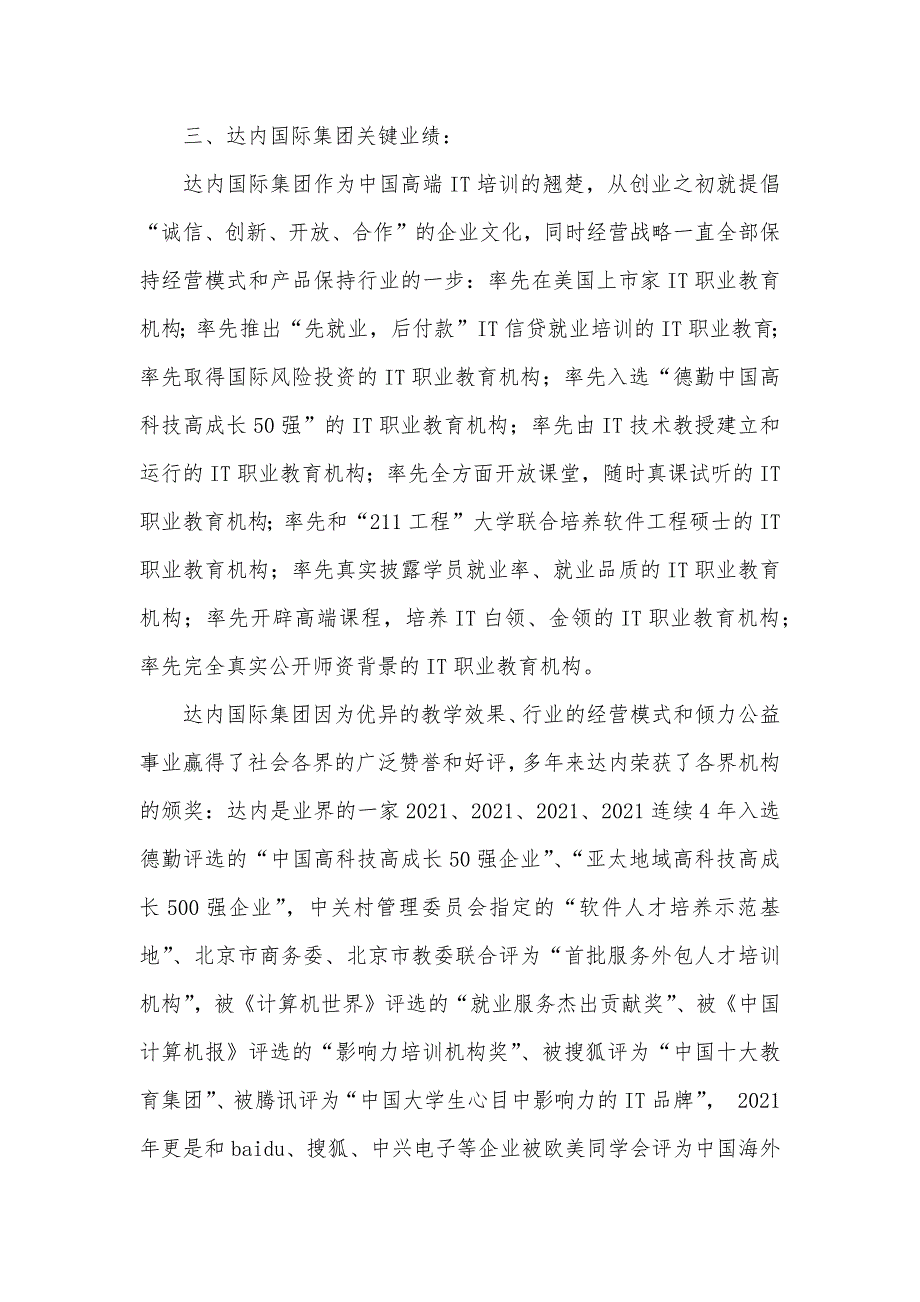 三、达内国际集团关键业绩：
达内国际集团作为中国高端 IT 培训的翘楚，从创业之初就提倡
“诚信、创新、开放、合作”的企业文化，同时经营战略一直全部保
持经营模式和产品保持行业的一步：率先在美国上市家 IT 职业教育
机构；率先推出“先就业，后付款”IT 信贷就业培训的 IT 职业教育；
率先取得国际风险投资的 IT 职业教育机构；率先入选“德勤中国高
科技高成长 50 强”的 IT 职业教育机构；率先由 IT 技术教授建立和
运行的 IT 职业教育机构；率先全方面开放课堂，随时真课试听的 IT
职业教育机构；率先和“211 工程”大学联合培养软件工程硕士的 IT
职业教育机构；率先真实披露学员就业率、就业品质的 IT 职业教育
机构；率先开辟高端课程，培养 IT 白领、金领的 IT 职业教育机构；
率先完全真实公开师资背景的 IT 职业教育机构。
达内国际集团因为优异的教学效果、行业的经营模式和倾力公益
事业赢得了社会各界的广泛赞誉和好评，多年来达内荣获了各界机构
的颁奖：达内是业界的一家 2021、2021、2021、2021 连续 4 年入选
德勤评选的“中国高科技高成长 50 强企业”、“亚太地域高科技高成
长 500 强企业”，中关村管理委员会指定的“软件人才培养示范基
地”、北京市商务委、北京市教委联合评为“首批服务外包人才培训
机构”，被《计算机世界》评选的“就业服务杰出贡献奖”、被《中国
计算机报》评选的“影响力培训机构奖”、被搜狐评为“中国十大教
育集团”、被腾讯评为“中国大学生心目中影响力的 IT 品牌”， 2021
年更是和 baidu、搜狐、中兴电子等企业被欧美同学会评为中国海外